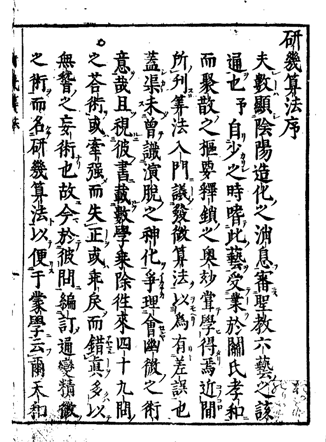 研幾算法序
夫數顯陰陽造化之消息審聖教六藝之該
通也予自少之時嗜此藝受業於關氏孝和
而聚散之樞要釋鎖之奧妙嘗學得焉近閱
所列筭法入門議發微算法以為有差誤也
蓋渠未曾識演脫之神化爭理會幽微之術
意哉且視彼書載數學乘除徃來四十九問
之荅術或牽强而失正或乖戾而錯眞多以
無瞀之妄術也故今於彼問編訂通變精微
之術而名研幾算法以便于蒙學云爾天和